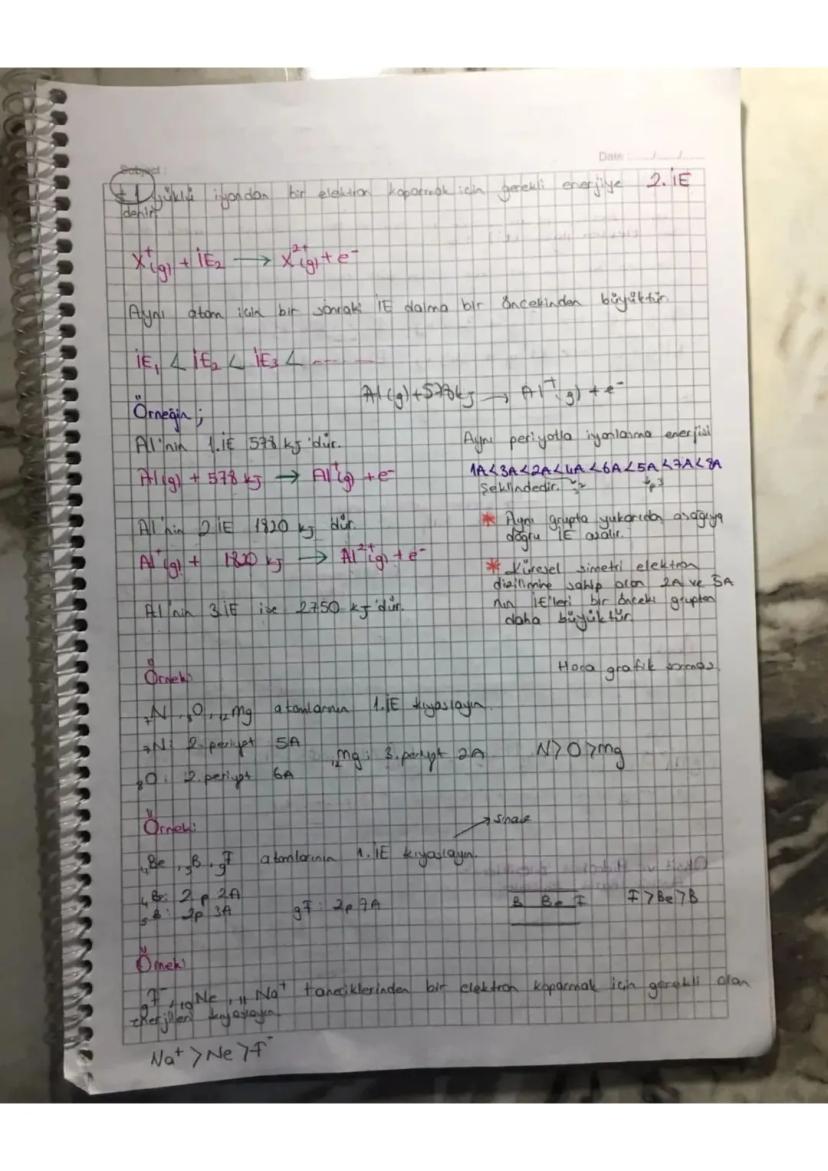 Subject
Date: ..../..../....
+1 yüklü iyondan bir elektron koparmak için gerekli enerjiye 2.İE
denir
X⁺(g) + İE₂ → X²⁺(g) + e⁻
Aynı atom için bir sonraki İE daima bir öncekinden büyüktür
İE₁ < İE₂ < İE₃ < ------
Al(g) + 578 kj → Al⁺(g) + e⁻
Örneğin;
Al'nin 1.İE 578 kj'dür.
Al(g) + 578 kj → Al⁺(g) + e⁻
Al'nin 2.İE 1820 kj dür.
Al⁺(g) + 1820 kj → Al²⁺(g) + e⁻
Al'nin 3.İE ise 2750 kj'dür.
Aynı periyotta iyonlanma enerjisi
1A<3A<2A<4A<6A<5A<7A<8A
şeklindedir.
* Aynı grupta yukarıdan aşağıya
doğru İE azalır.
* Küresel simetri elektron
dizilimine sahip olan 2A ve 5A
nın İE'leri bir önceki gruptan
daha büyüktür
Hoca grafik sormaz
Örnek:
₇N, ₈O, ₁₂Mg atomlarının 1.İE kıyaslayın.
₇N: 2.periyot 5A
₁₂Mg: 3.periyot 2A
N>O>Mg
₈O: 2.periyot 6A
Örnek:
₄Be, ₅B, ₉F atomlarının 1.İE kıyaslayın.
₄Be: 2p 2A
₅B: 2p 3A
₉F: 2p 7A
B Be F
F>Be>B
Örnek:
₉F⁻, ₁₀Ne, ₁₁Na⁺ taneciklerinden bir elektron koparmak için gerekli olan
enerjileri kıyaslayın
Na⁺ > Ne > F⁻